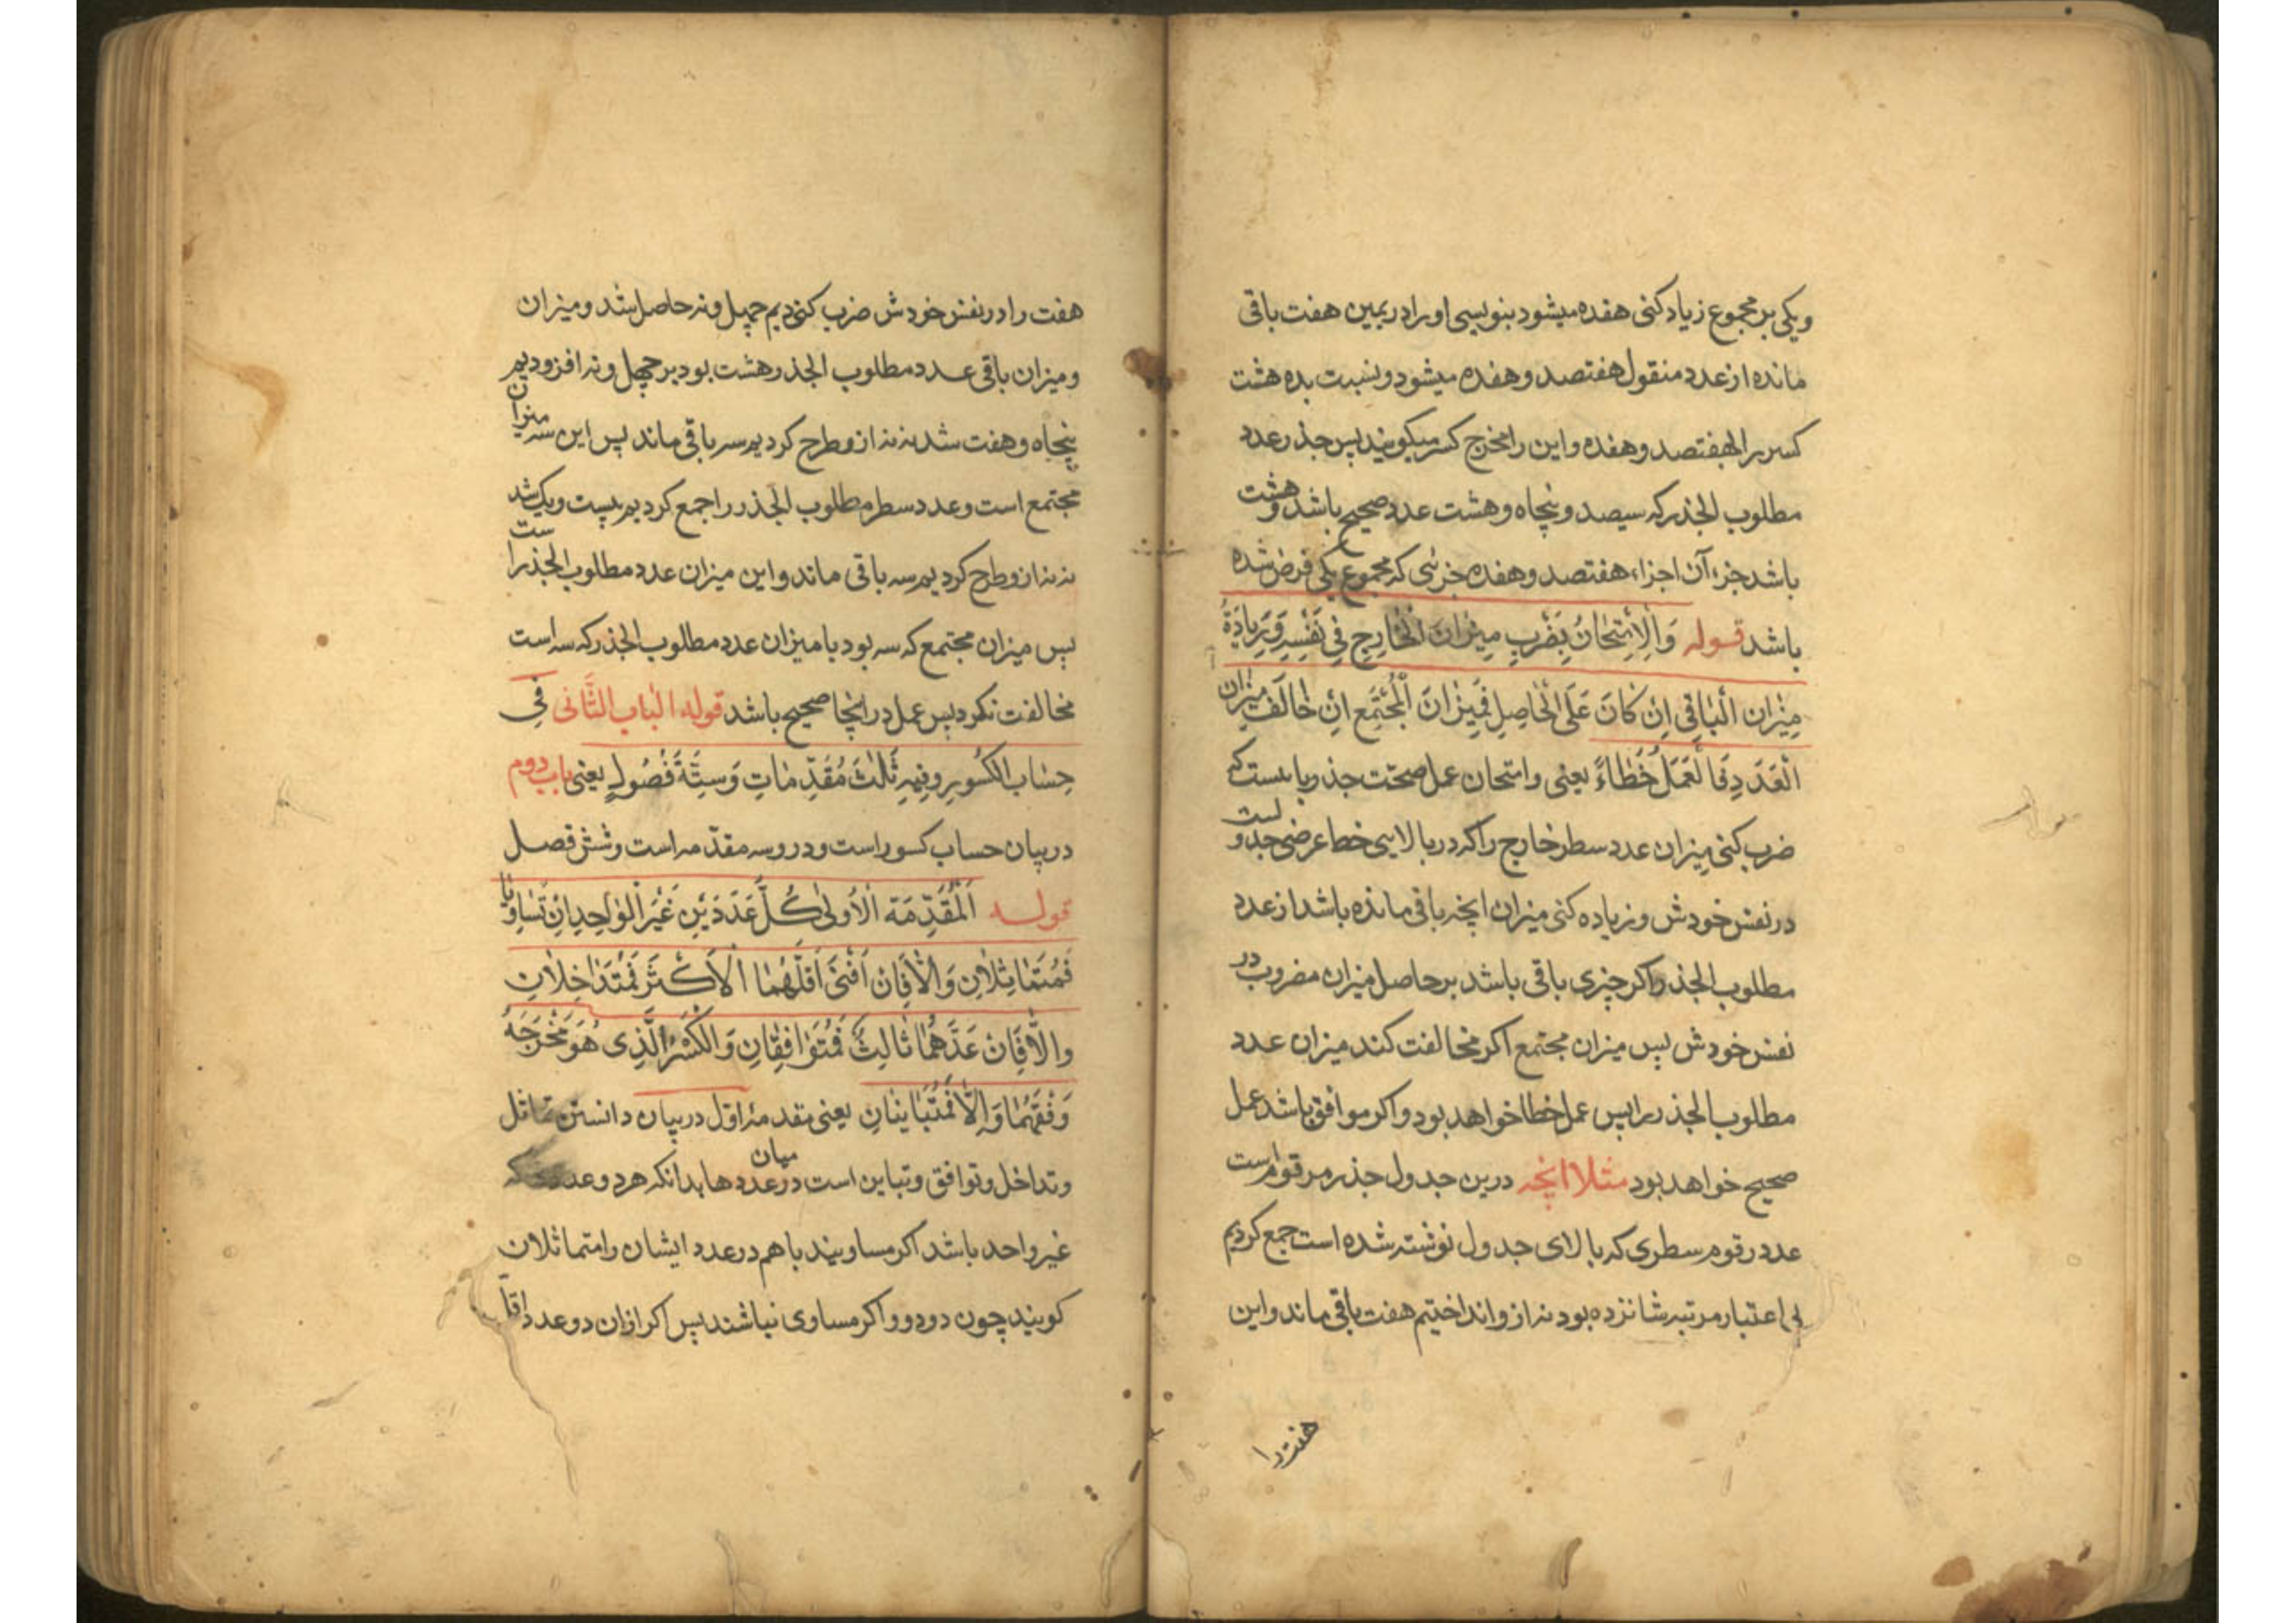 ویکی بر مجموع زیاد کنی هفده میشود بنویسی او را در یمین هفت باقی
مانده از عدد منقول هفتصد و هفده میشود و نسبت بده هشت
کسر را بهفتصد و هفده و این را مخرج کسر میکویند پس جذر عدد
مطلوب الجذر که سیصد و پنجاه و هشت عدد صحیح باشد و هشت
باشد جزء آن اجزاء هفتصد و هفده جزئی که مجموع یکی فرض شده
باشد قوله وَالْاِمْتِحٰانُ بِضَرْبِ مِیزٰانَ الْخٰارِجِ فِی نَفْسِهِ وَ زِیٰادَةُ
مِیزٰانِ الْبٰاقِی اِنْ کٰانَ عَلَی الْحٰاصِلِ فَمِیزٰانَ الْمُجْتَمِعِ اِنْ خٰالَفَ مِیزٰان
الْعَدَدِ فَالْعَمَلُ خَطٰاءً یعنی وامتحان عمل صحت جذر بانست که
ضرب کنی میزان عدد سطر خارج را که در بالایی خطا عرضی جدولست
در نفس خودش و زیاده کنی میزان انچه باقی مانده باشد از عدد
مطلوب الجذر واکر چیزی باقی باشد بر حاصل میزان مضروب در
نفس خودش پس میزان مجتمع اکر مخالفت کند میزان عدد
مطلوب الجذر را پس عمل خطا خواهد بود واکر موافق باشد عمل
صحیح خواهد بود مثلا انچه درین جدول جذر مرقوم است
عدد رقوم سطری که بالای جدول نوشته شده است جمع کردیم
بی اعتبار مرتبه شانزده بود نه ازو انداختیم هفت باقی ماند واین
هفت را
هفت را در نفس خودش ضرب کنیدیم چهل ونه حاصل شد ومیزان
ومیزان باقی عدد مطلوب الجذر هشت بود بر چهل ونه افزودیم
پنجاه وهفت شد نه نه ازو طرح کردیم سه باقی ماند پس این سه میزان
مجتمع است وعدد سطر مطلوب الجذر را جمع کردیم بیست ویک شد
نه نه ازو طرح کردیم سه باقی ماند واین میزان عدد مطلوب الجذر است
پس میزان مجتمع که سه بود با میزان عدد مطلوب الجذر که سه است
مخالفت نکرد پس عمل در اینجا صحیح باشد قوله الْبٰابِ الثَّانی فِی
حِسٰابِ الْکُسُورِ وفِیهِ ثَلٰثَ مُقَدِّمٰاتٍ وَسِتَّةَ فُصُولٍ یعنی باب دوم
در بیان حساب کسور است ودرو سه مقدّمه است وشش فصل
قوله اَلْمُقَدِّمَة الْاُولیٰ کُلَّ عَدَدَیْنِ غَیْرَ الْوٰاحِدِ اِنْ تَسٰاوَیٰا
فَمُتَمٰاثِلٰانِ وَاِلّٰا فَاِنْ اَفْنیٰ اَقَلَّهُمٰا الْاَکْثَرَ فَمُتَدٰاخِلٰانِ
والّٰا فَاِنْ عَدَّهُمٰا ثٰالِثٌ فَمُتَوٰافِقٰانِ وَالْکَسْرُ الَّذِی هُوَ مَخْرَجَهُ
وَفْقَهُمٰا وَاِلّٰا فَمُتَبٰایِنٰانِ یعنی مقدمهٔ اول در بیان دانستن تماثل
وتداخل وتوافق وتباین است در میان عددها بدانکه هر دو عدد که
غیر واحد باشد اکر مساویند با هم در عدد ایشان را متماثلان
کویند چون دو دو واکر مساوی نباشند پس اکر ازان دو عدد اقل